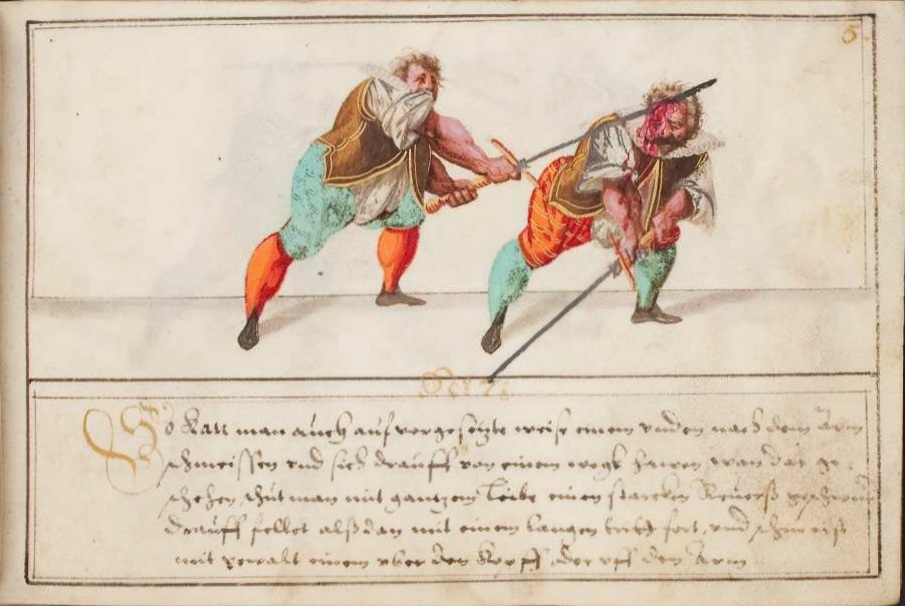 5
So Kan man auch auf vorgesetzte weise einem unden nach dem Arm
schmeissen und sich drauff von einem wegk hawen, wan das ge-
schehen, thut man mit gantzem Leibe einen starcken Reuerß
drauff fellet alßdan mit einem langen tritt fort, und schmeist
mit gewalt einem uber den Kopff oder uff den Arm